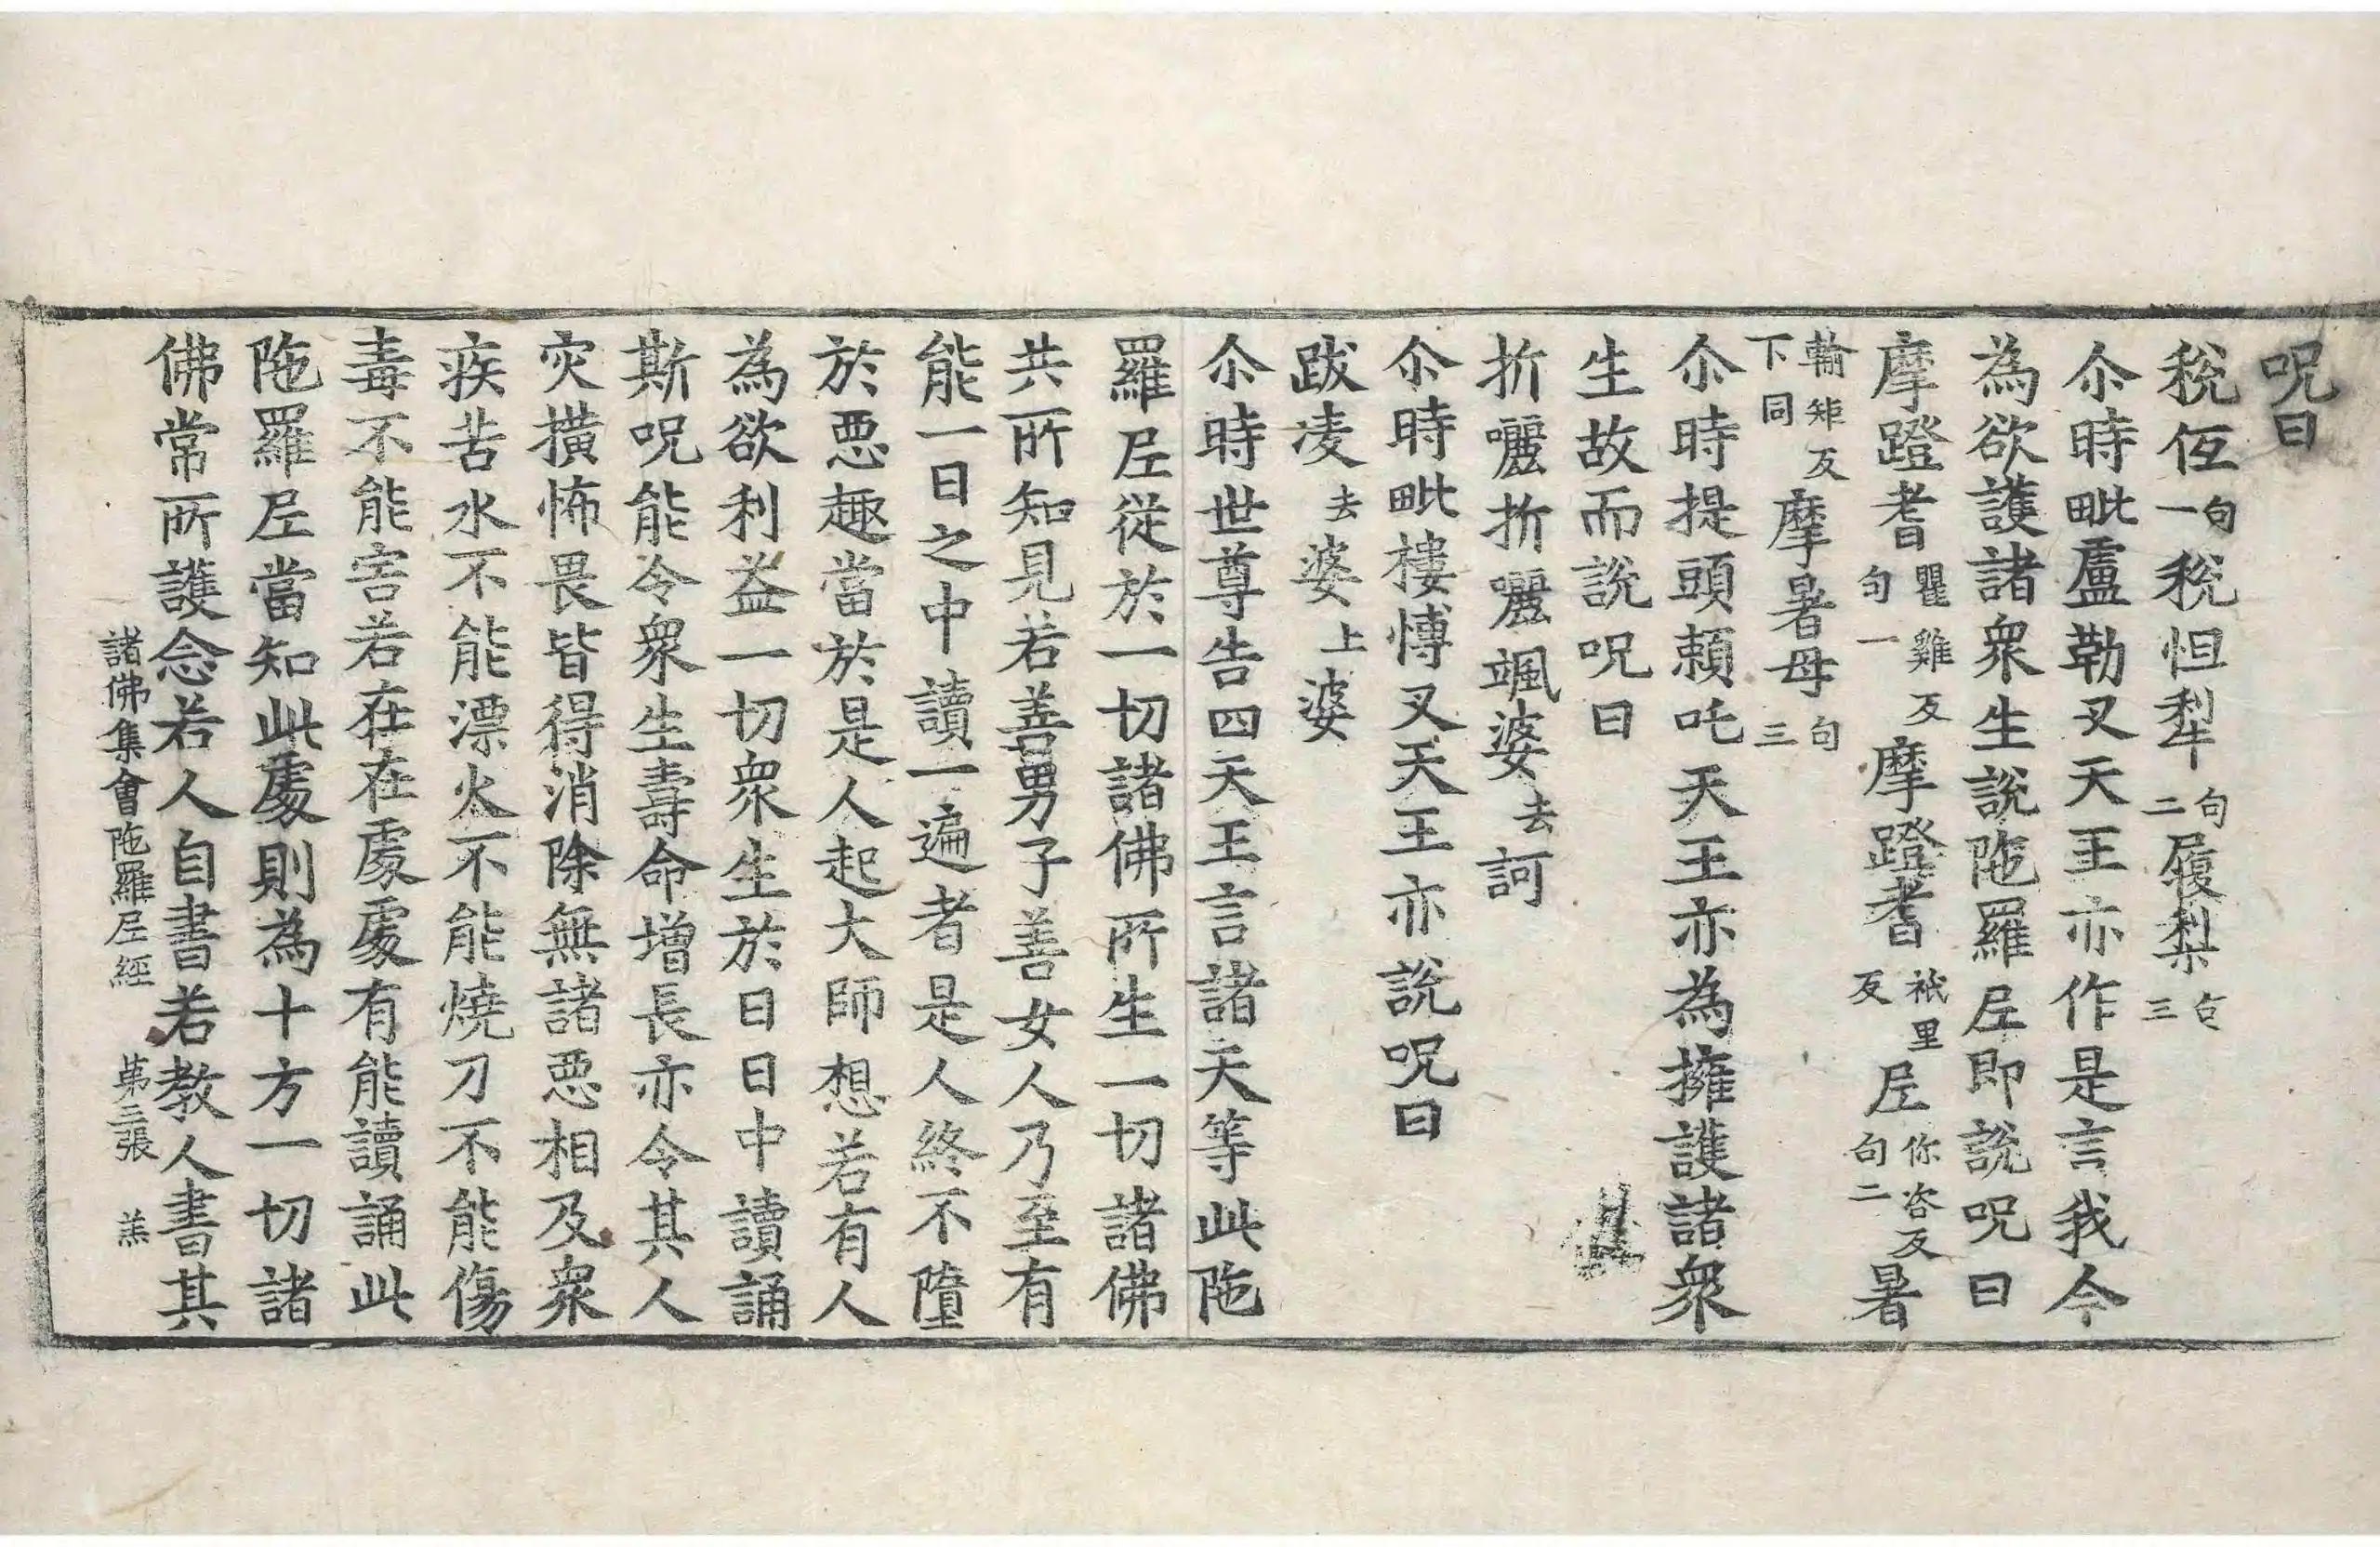 呪曰
稅佢一句稅怛犁二句履梨三句
尒時毗盧勒叉天王亦作是言我今
為欲護諸衆生說陁羅𡰱即說呪曰
摩蹬耆瞿雞反句一摩蹬耆祇里反𡰱你咨反句二暑
輸矩反下同摩暑母三句
尒時提頭頼吒天王亦為擁護諸衆
生故而說呪曰
折囇折囇颯婆去訶
尒時毗樓愽叉天王亦說呪曰
跋凌去婆上婆
尒時世尊告四天王言諸天等此陁
羅𡰱從於一切諸佛所生一切諸佛
共所知見若善男子善女人乃至有
能一日之中讀一遍者是人終不墮
於惡趣當於是人起大師想若有人
為欲利益一切衆生於日日中讀誦
斯呪能令衆生壽命增長亦令其人
灾撗怖畏皆得消除無諸惡相及衆
疾苦水不能漂火不能燒刀不能傷
毒不能害若在在處處有能讀誦此
陁羅𡰱當知此處則為十方一切諸
佛常所護念若人自書若教人書其
諸佛集會陁羅𡰱經 苐三張 羔